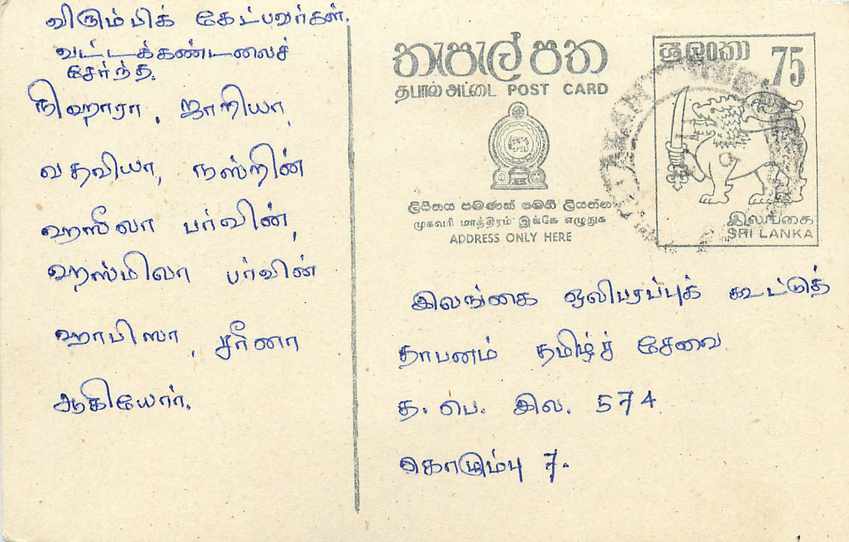 விரும்பிக் கேட்பவர்கள்.
வட்டக்கண்டலைச்
சேர்ந்த.
நிஹாரா, ஜானியா,
வதவியா, நஸ்றின்
ஹஸீலா பர்வின்,
ஹஸ்மிலா பர்வின்
ஹாபிஸா, சரீனா
ஆகியோர்.
තැපැල් පත
தபால் அட்டை POST CARD
ලිපිනය පමණක් මෙහි ලියන්න
முகவரி மாத்திரம் இங்கே எழுதுக
ADDRESS ONLY HERE
ශ්‍රී ලංකා 75
இலங்கை
SRI LANKA
இலங்கை ஒலிபரப்புக் கூட்டுத்
தாபனம் தமிழ்ச் சேவை
த. பெ. இல. 574
கொழும்பு 7.